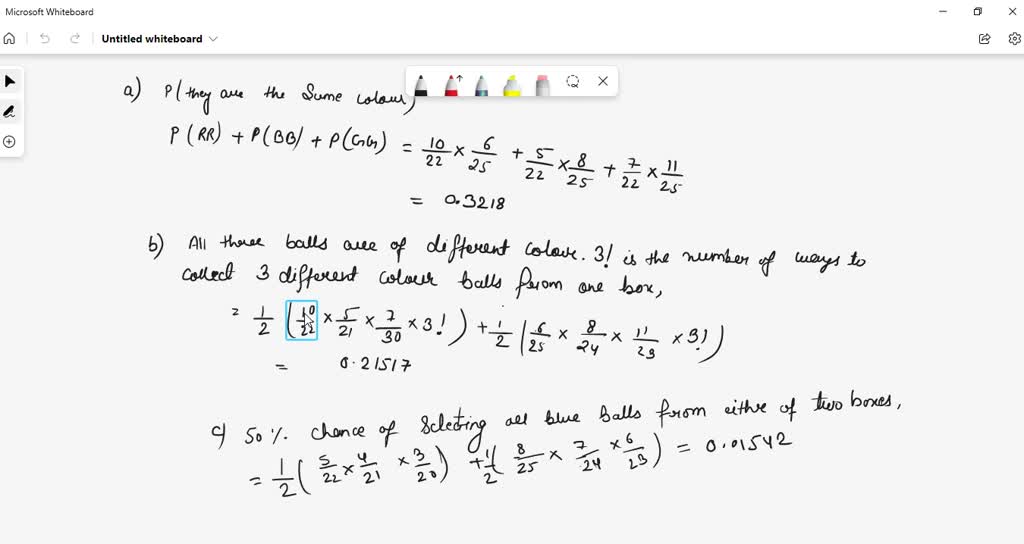 Microsoft Whiteboard
Untitled whiteboard
a) P(they are the Same colour)
P(RR) + P(BB) + P(GG) = 10/22 × 6/25 + 5/22 × 8/25 + 7/22 × 11/25
= 0.3218
b) All three balls are of different colour. 3! is the number of ways to
collect 3 different colour balls from one box,
= 1/2 (10/22 × 5/21 × 7/30 × 3!) + 1/2 (6/25 × 8/24 × 11/23 × 3!)
= 0.21517
c) 50 %. chance of Selecting all blue balls from either of two boxes,
= 1/2 (5/22 × 4/21 × 3/20) + 1/2 (8/25 × 7/24 × 6/23) = 0.01542